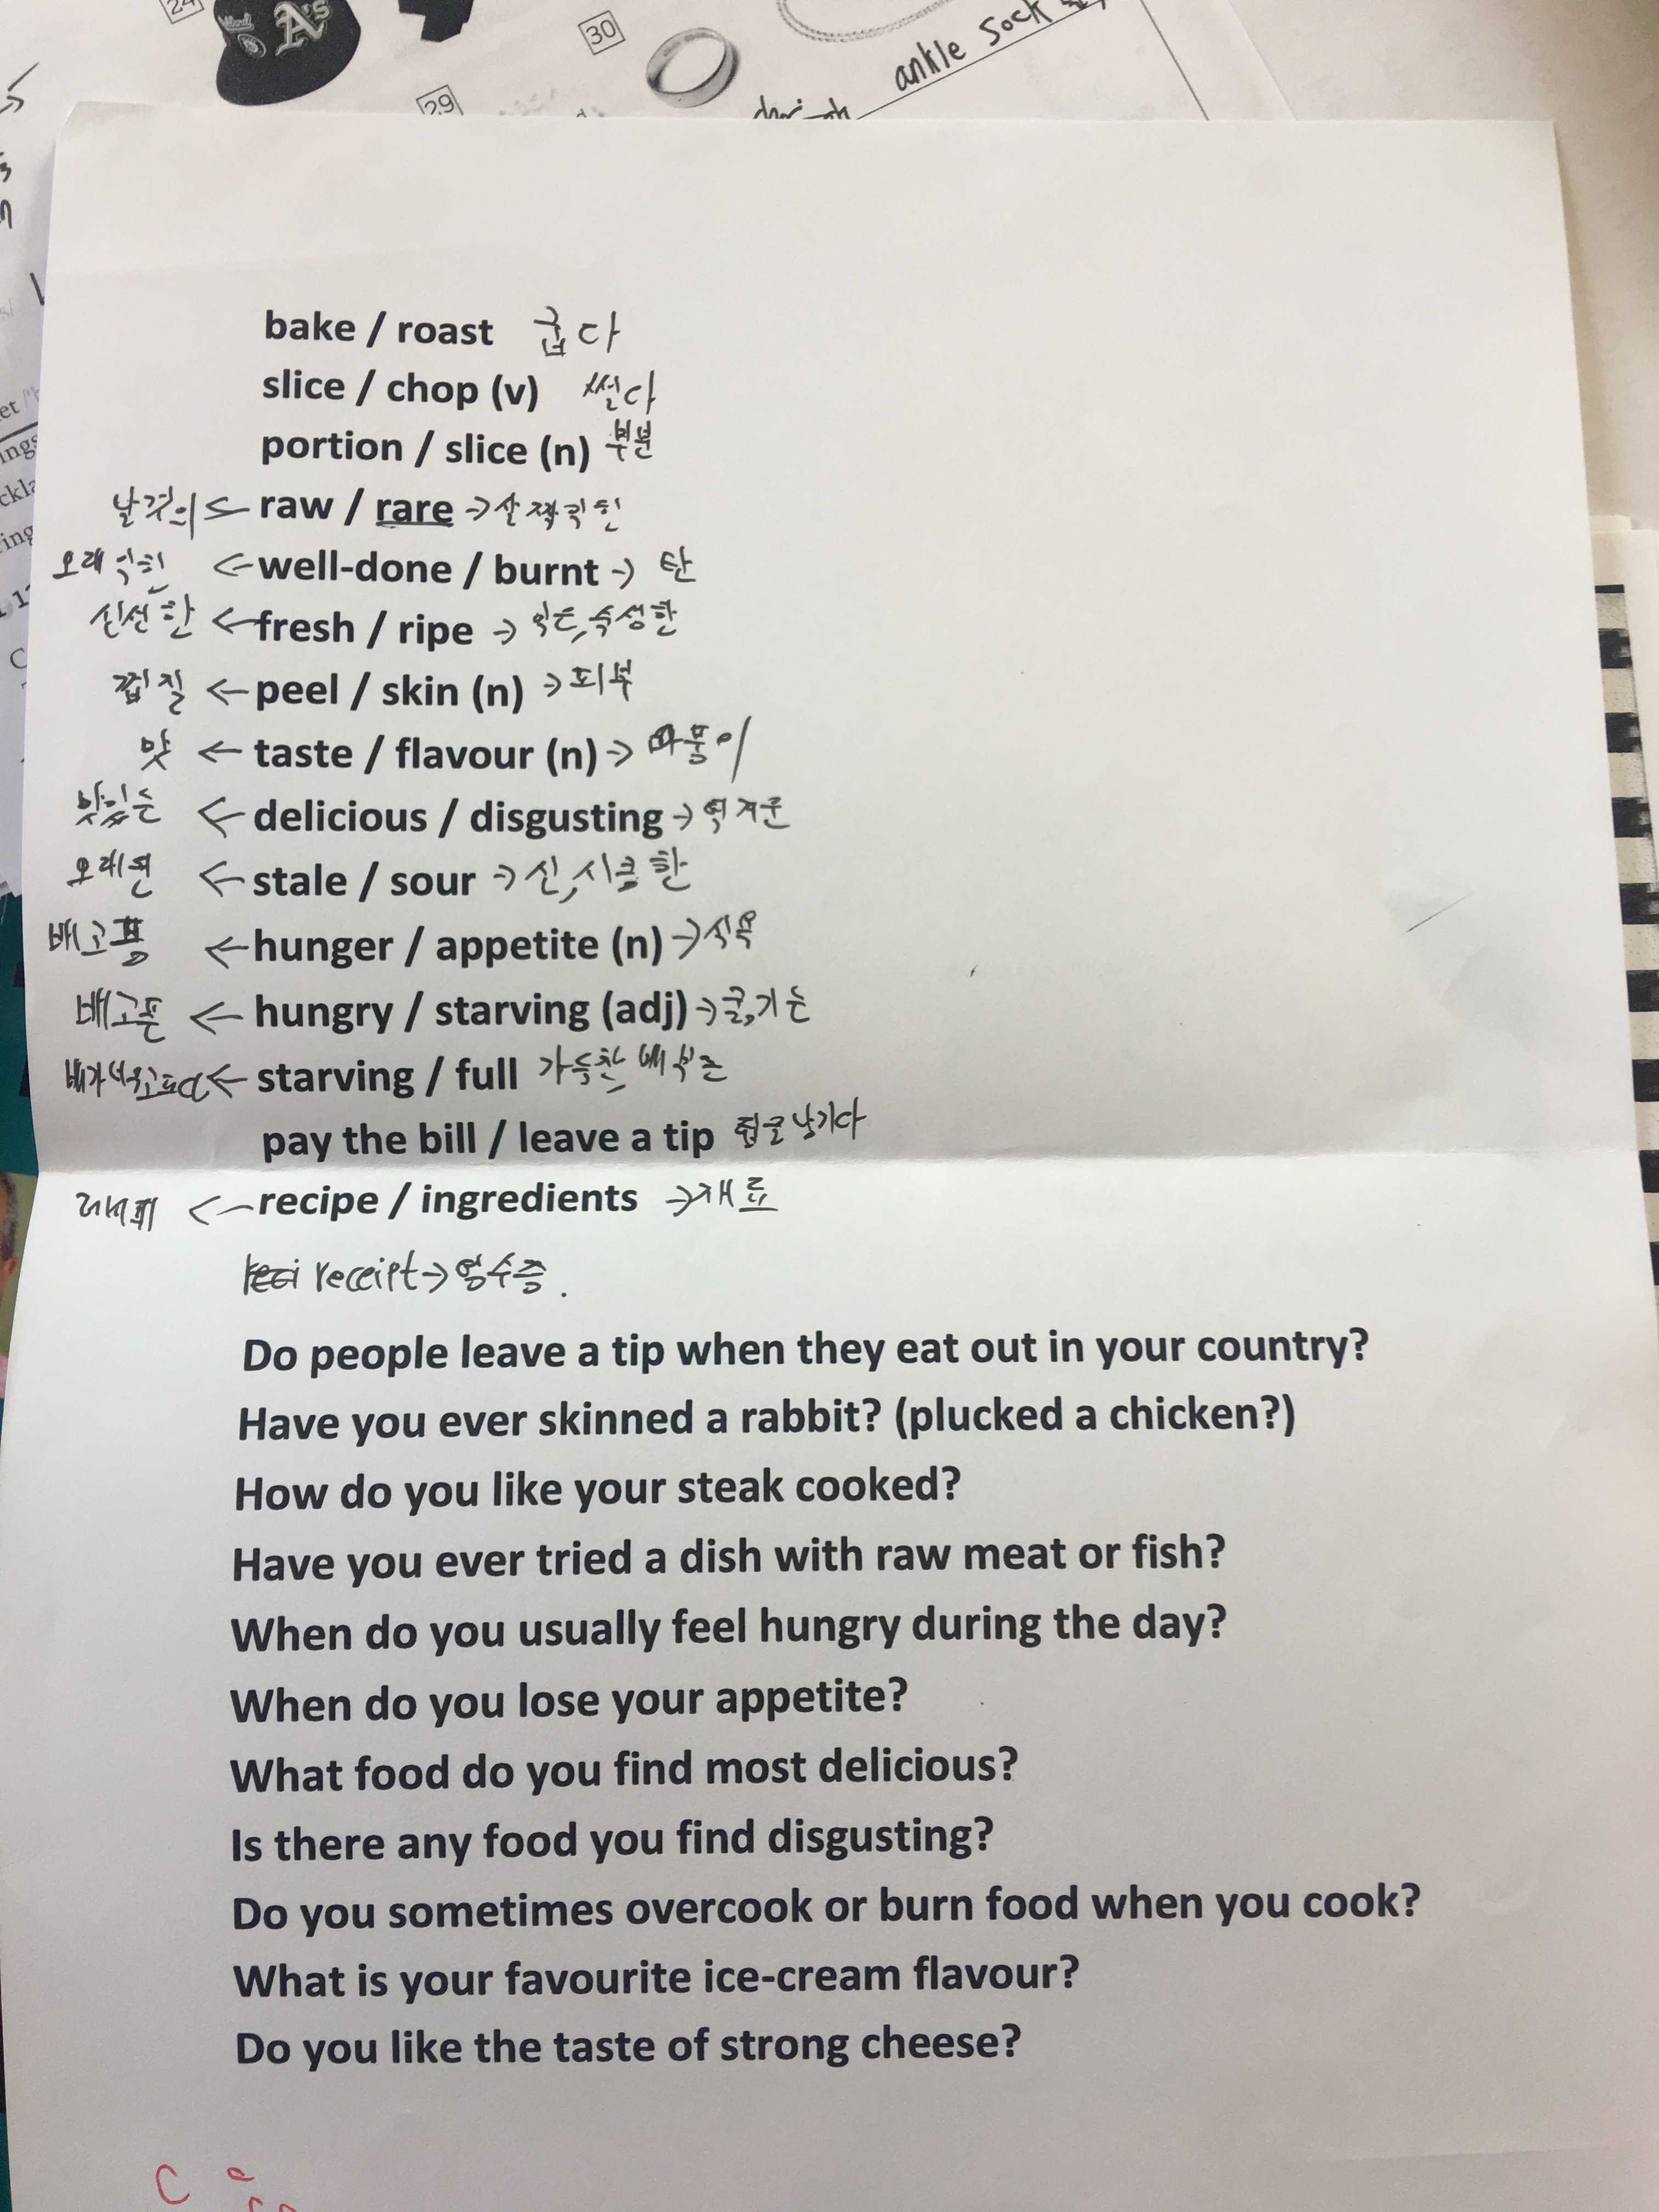 24
A's
30
29
ankle sock
bake / roast 굽다
slice / chop (v) 썰다
portion / slice (n) 부분
날것의 ← raw / rare → 살짝익힌
오래 익힌 ← well-done / burnt → 탄
신선한 ← fresh / ripe → 익은, 숙성한
껍질 ← peel / skin (n) → 피부
맛 ← taste / flavour (n) →
맛있는 ← delicious / disgusting → 역겨운
오래된 ← stale / sour → 신, 시큼한
배고픔 ← hunger / appetite (n) → 식욕
배고픈 ← hungry / starving (adj) → 굶기는
배가너무고프다 ← starving / full 가득찬 배부른
pay the bill / leave a tip 팁을 남기다
레세피 ← recipe / ingredients → 재료
receipt → 영수증.
Do people leave a tip when they eat out in your country?
Have you ever skinned a rabbit? (plucked a chicken?)
How do you like your steak cooked?
Have you ever tried a dish with raw meat or fish?
When do you usually feel hungry during the day?
When do you lose your appetite?
What food do you find most delicious?
Is there any food you find disgusting?
Do you sometimes overcook or burn food when you cook?
What is your favourite ice-cream flavour?
Do you like the taste of strong cheese?